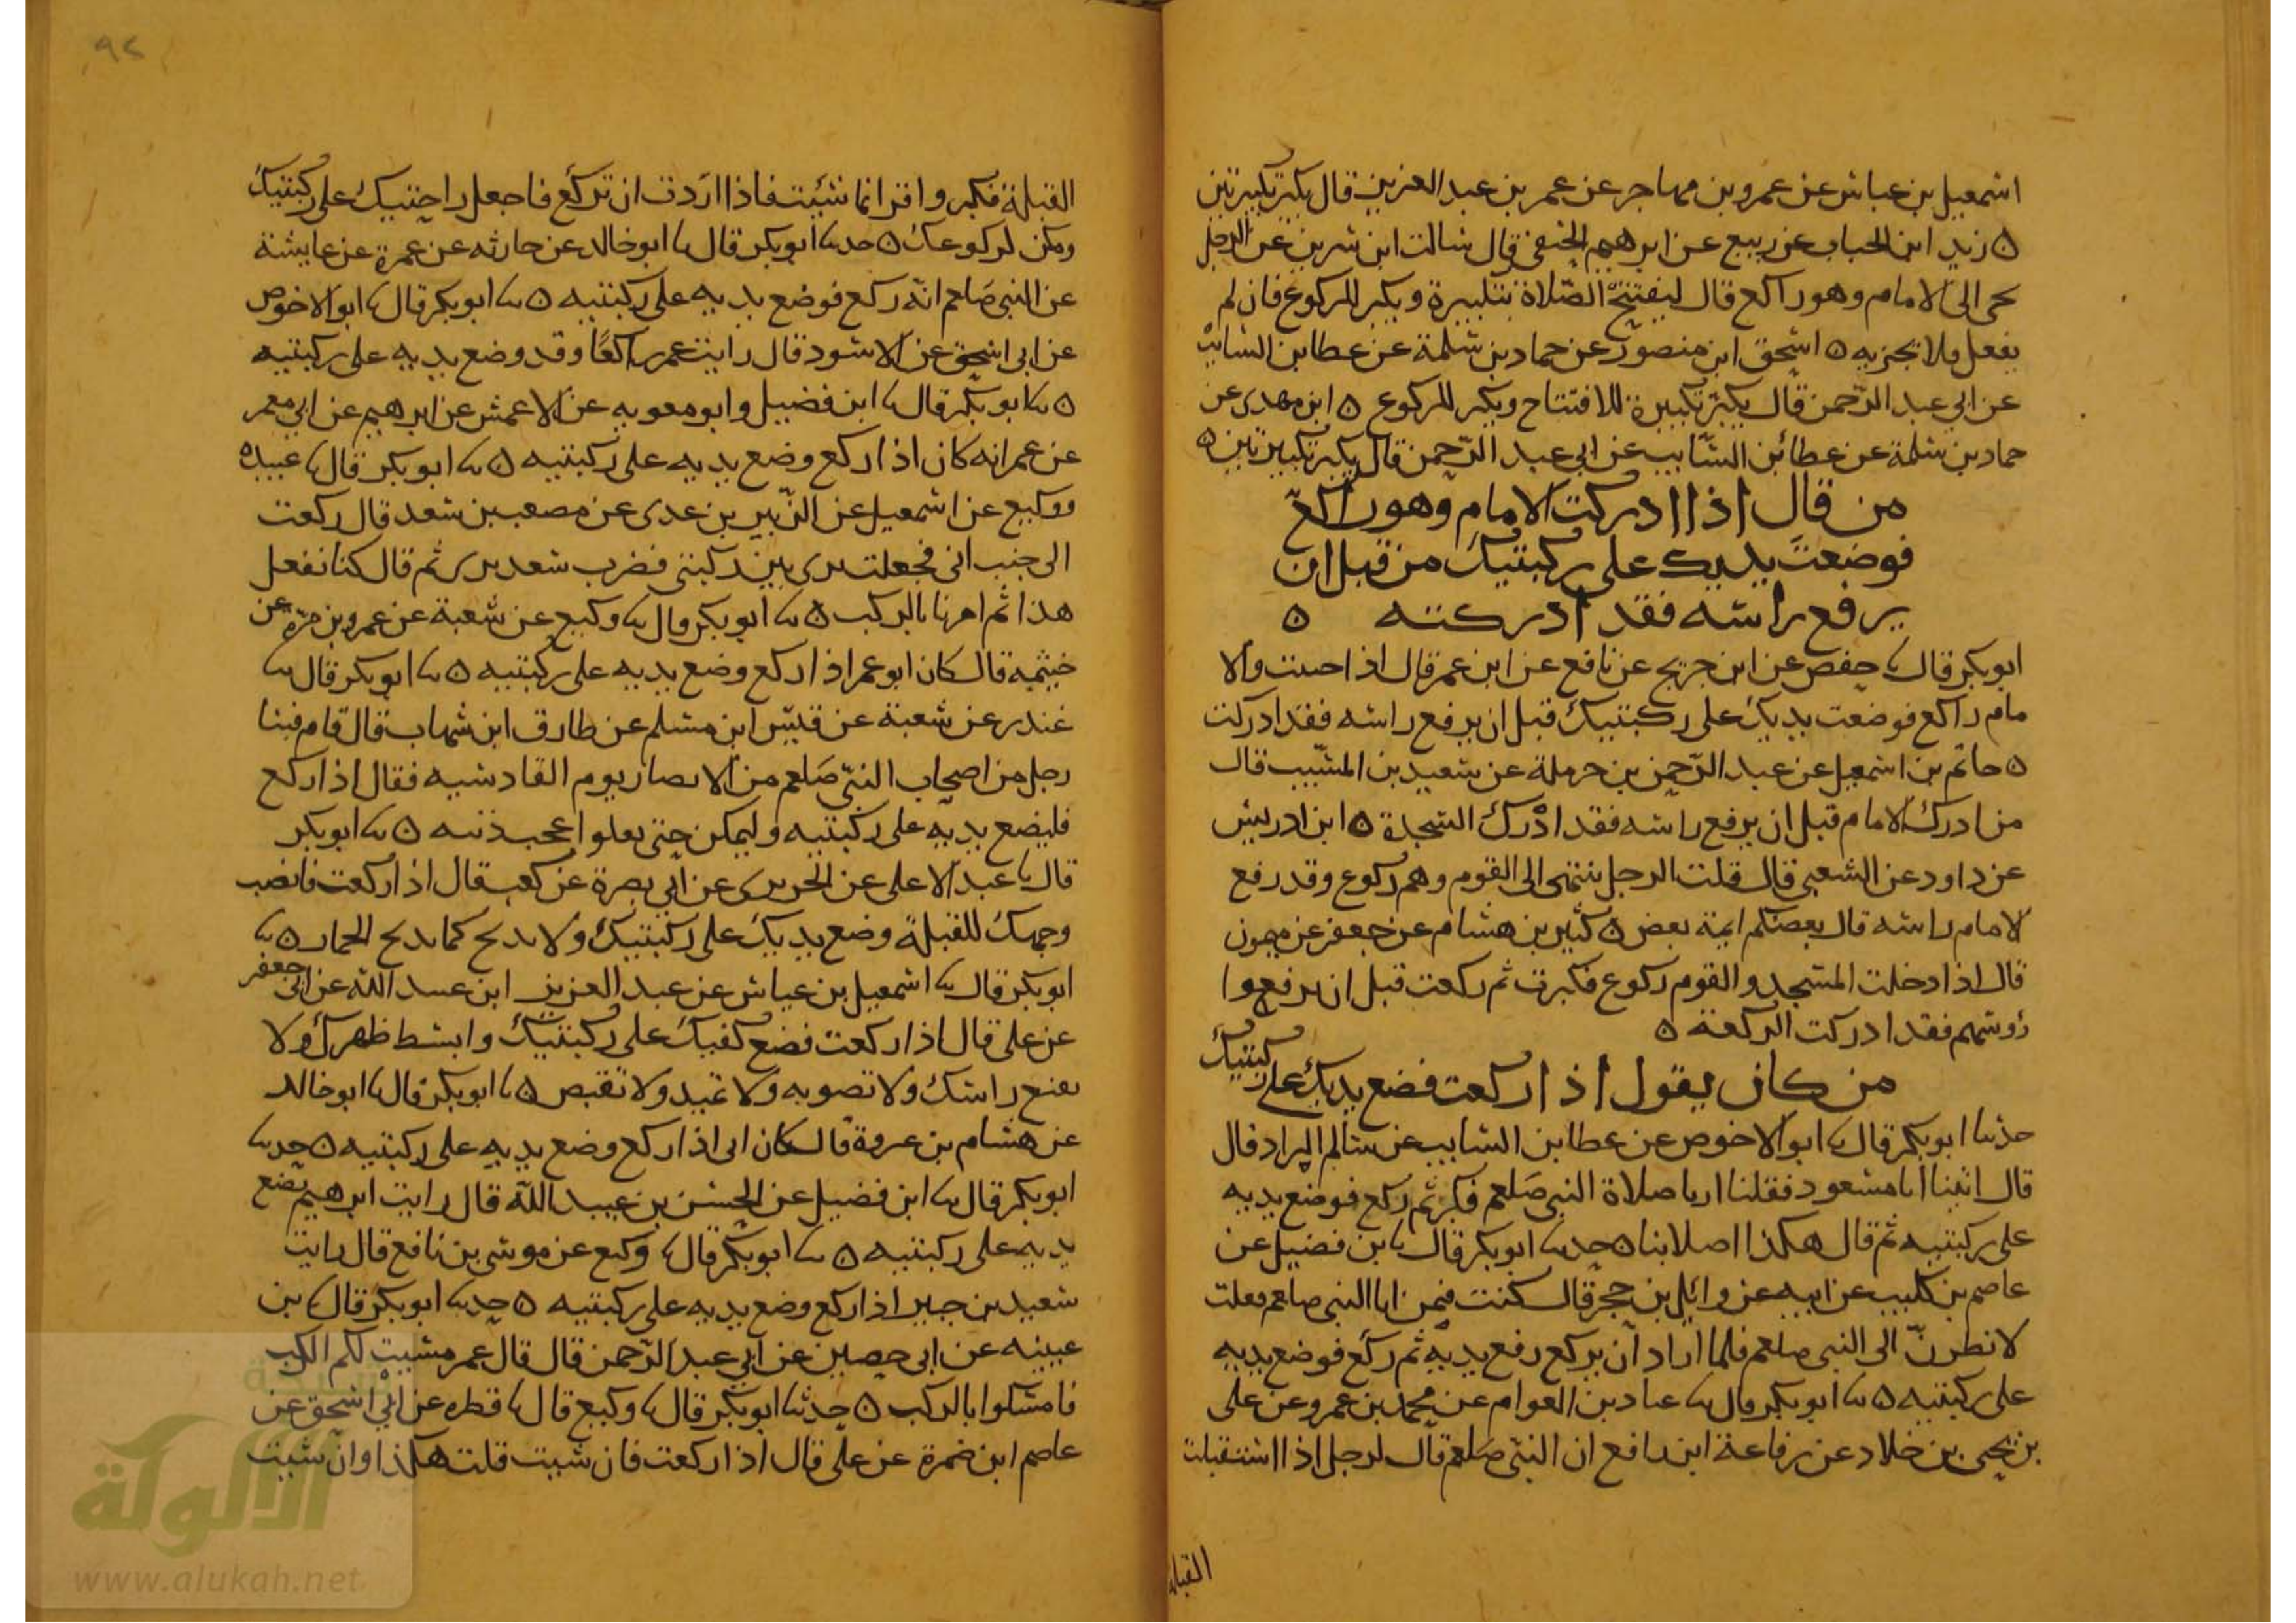 اسمعيل بن عياش عن عمرو بن مهاجر عن عمر بن عبد العزيز قال يكبر تكبيرتين
ه زيد ابن الحباب عن ربيع عن ابرهيم الحنفي قال سالت ابن سرين عن الرجل
يحى الى الامام وهو راكع قال ليفتتح الصلاة بتكبيرة ويكبر للركوع فان لم
يفعل فلا تجزيه ه اسحق ابن منصور عن حماد بن سلمة عن عطا بن السايب
عن ابي عبد الرحمن قال يكبر تكبيرة للافتتاح ويكبر للركوع ه ابن مهدى عن
حماد بن سلمة عن عطا بن السايب عن ابي عبد الرحمن قال يكبر تكبيرتين ه
من قال اذا ادركت الامام وهو راكع
فوضعت يديك على ركبتيك من قبل ان
يرفع راسه فقد ادركته ه
ابو بكر قال نا حفص عن ابن جريج عن نافع عن ابن عمر قال اذا جيت والا
مام راكع فوضعت يديك على ركبتيك قبل ان يرفع راسه فقد ادركت
ه حاتم بن اسمعيل عن عبد الرحمن بن حرملة عن سعيد بن المسيب قال
من ادرك الامام قبل ان يرفع راسه فقد ادرك السجدة ه ابن ادريس
عن داود عن الشعبي قال قلت الرجل ينتهى الى القوم وهم ركوع وقد رفع
الامام راسه قال بعضكم ايمة بعض ه كثير بن هشام عن جعفر عن ميمون
قال اذا دخلت المسجد والقوم ركوع فكبرت ثم ركعت قبل ان يرفعوا
رؤسهم فقد ادركت الركعة ه
من كان يقول اذا ركعت فضع يديك على ركبتيك
حدثنا ابو بكر قال نا ابو الاحوص عن عطا بن السايب عن سالم البراد قال
قال اتينا ابا مسعود فقلنا ارنا صلاة النبي صلعم فكبر ثم ركع فوضع يديه
على ركبتيه ثم قال هكذا اصلا بنا ه حدثنا ابو بكر قال نا ابن فضيل عن
عاصم بن كليب عن ابيه عن وائل بن حجر قال كنت فيمن اتا النبي صلعم فقلت
لانظرن الى النبي صلعم فلما اراد ان يركع رفع يديه ثم ركع فوضع يديه
على ركبتيه ه نا ابو بكر قال نا عباد بن العوام عن محمد بن عمرو عن على
بن يحيى بن خلاد عن رفاعة ابن رافع ان النبي صلعم قال لرجل اذا استقبلت
القبلة
القبلة فكبر واقرا بما شئت فاذا اردت ان تركع فاجعل راحتيك على ركبتيك
ومكن لركوعك ه حدثنا ابو بكر قال نا ابو خالد عن حارثه عن عمرة عن عايشة
عن النبي صلعم انه ركع فوضع يديه على ركبتيه ه نا ابو بكر قال نا ابو الاحوص
عن ابي اسحق عن الاسود قال رايت عمر راكعا وقد وضع يديه على ركبتيه
ه نا ابو بكر قال نا ابن فضيل وابو معويه عن الاعمش عن ابرهيم عن ابي معمر
عن عمر انه كان اذا ركع وضع يديه على ركبتيه ه نا ابو بكر قال نا عبيده
ووكيع عن اسمعيل عن الزبير بن عدى عن مصعب بن سعد قال ركعت
الى جنب ابي فجعلت يدى بين ركبتي فضرب سعد يدى ثم قال كنا نفعل
هذا ثم امرنا بالركب ه نا ابو بكر قال نا وكيع عن شعبة عن عمرو بن مرة عن
خيثمه قال كان ابو عمر اذا ركع وضع يديه على ركبتيه ه نا ابو بكر قال نا
غندر عن شعبة عن قيس ابن مسلم عن طارق ابن شهاب قال قام فينا
رجل من اصحاب النبي صلعم من الانصار يوم القادسيه فقال اذا ركع
فليضع يديه على ركبتيه وليمكن حتى يعلوا عجب ذنبه ه نا ابو بكر
قال نا عبد الاعلى عن الجريرى عن ابي نصرة عن كعب قال اذا ركعت فانصب
وجهك للقبلة وضع يديك على ركبتيك ولا تدبح كما يدبح الحمار ه نا
ابو بكر قال نا اسمعيل بن عياش عن عبد العزيز ابن عبيد الله عن ابي جعفر
عن على قال اذا ركعت فضع كفيك على ركبتيك وابسط ظهرك ولا
تقنع راسك ولا تصوبه ولا تمتد ولا تقبض ه نا ابو بكر قال نا ابو خالد
عن هشام بن عروة قال كان ابي اذا ركع وضع يديه على ركبتيه ه حدثنا
ابو بكر قال نا ابن فضيل عن الحسن بن عبيد الله قال رايت ابرهيم يضع
يديه على ركبتيه ه نا ابو بكر قال نا وكيع عن موسى بن نافع قال رايت
سعيد بن جبير اذا ركع وضع يديه على ركبتيه ه حدثنا ابو بكر قال نا بن
عيينه عن ابي حصين عن ابي عبد الرحمن قال قال عمر سنت لكم الركب
فامسكوا بالركب ه حدثنا ابو بكر قال نا وكيع قال نا فطر عن ابي اسحق عن
عاصم ابن ضمرة عن على قال اذا ركعت فان شيت قلت هكذا وان شيت
الألوكة
www.alukah.net